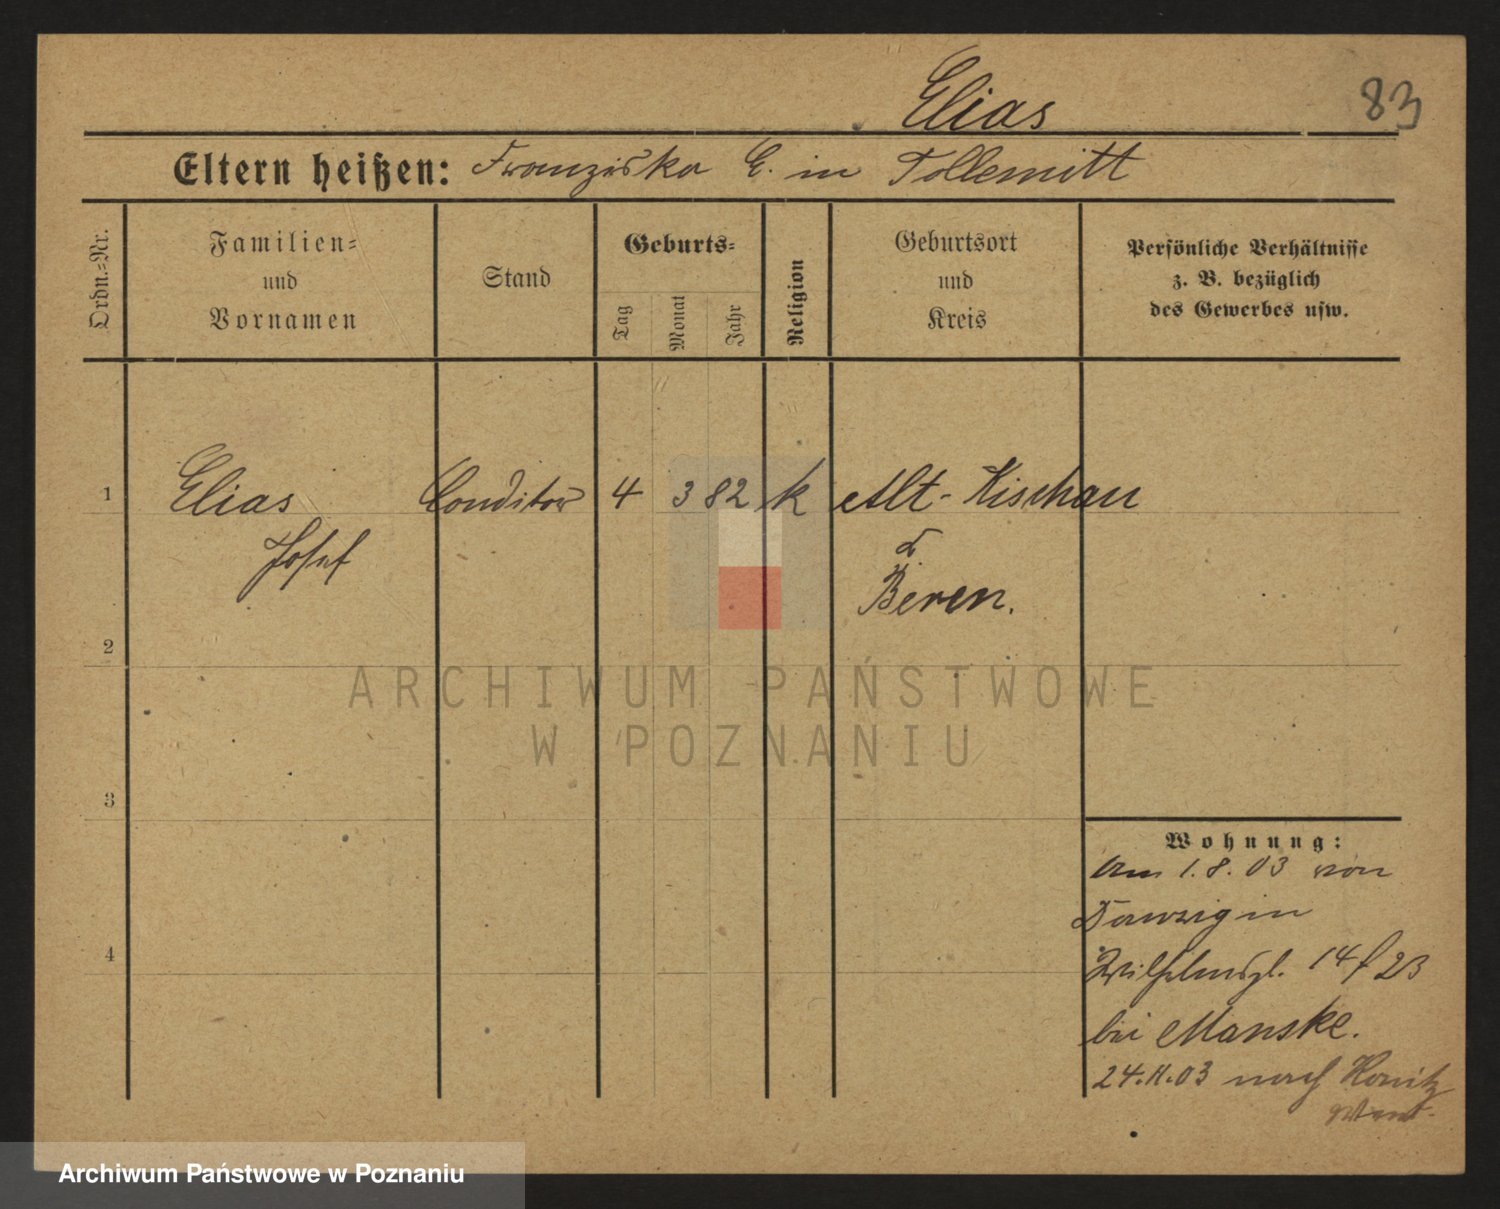 Elias
83
Eltern heißen: Franziska E. in Tollemitt
Ordn.=Nr.
Familien=
und
Vornamen
Stand
Geburts=
Tag
Monat
Jahr
Religion
Geburtsort
und
Kreis
Persönliche Verhältnisse
z. B. bezüglich
des Gewerbes usw.
1 Elias Conditor 4 3 82 k Alt-Kischau
Josef
Beren.
2
3
4
Wohnung:
Am 1.8.03 von
Danzig in
Wilhelmspl. 14 23
bei Manske.
24.11.03 nach Konitz
ARCHIWUM PAŃSTWOWE
W POZNANIU
Archiwum Państwowe w Poznaniu